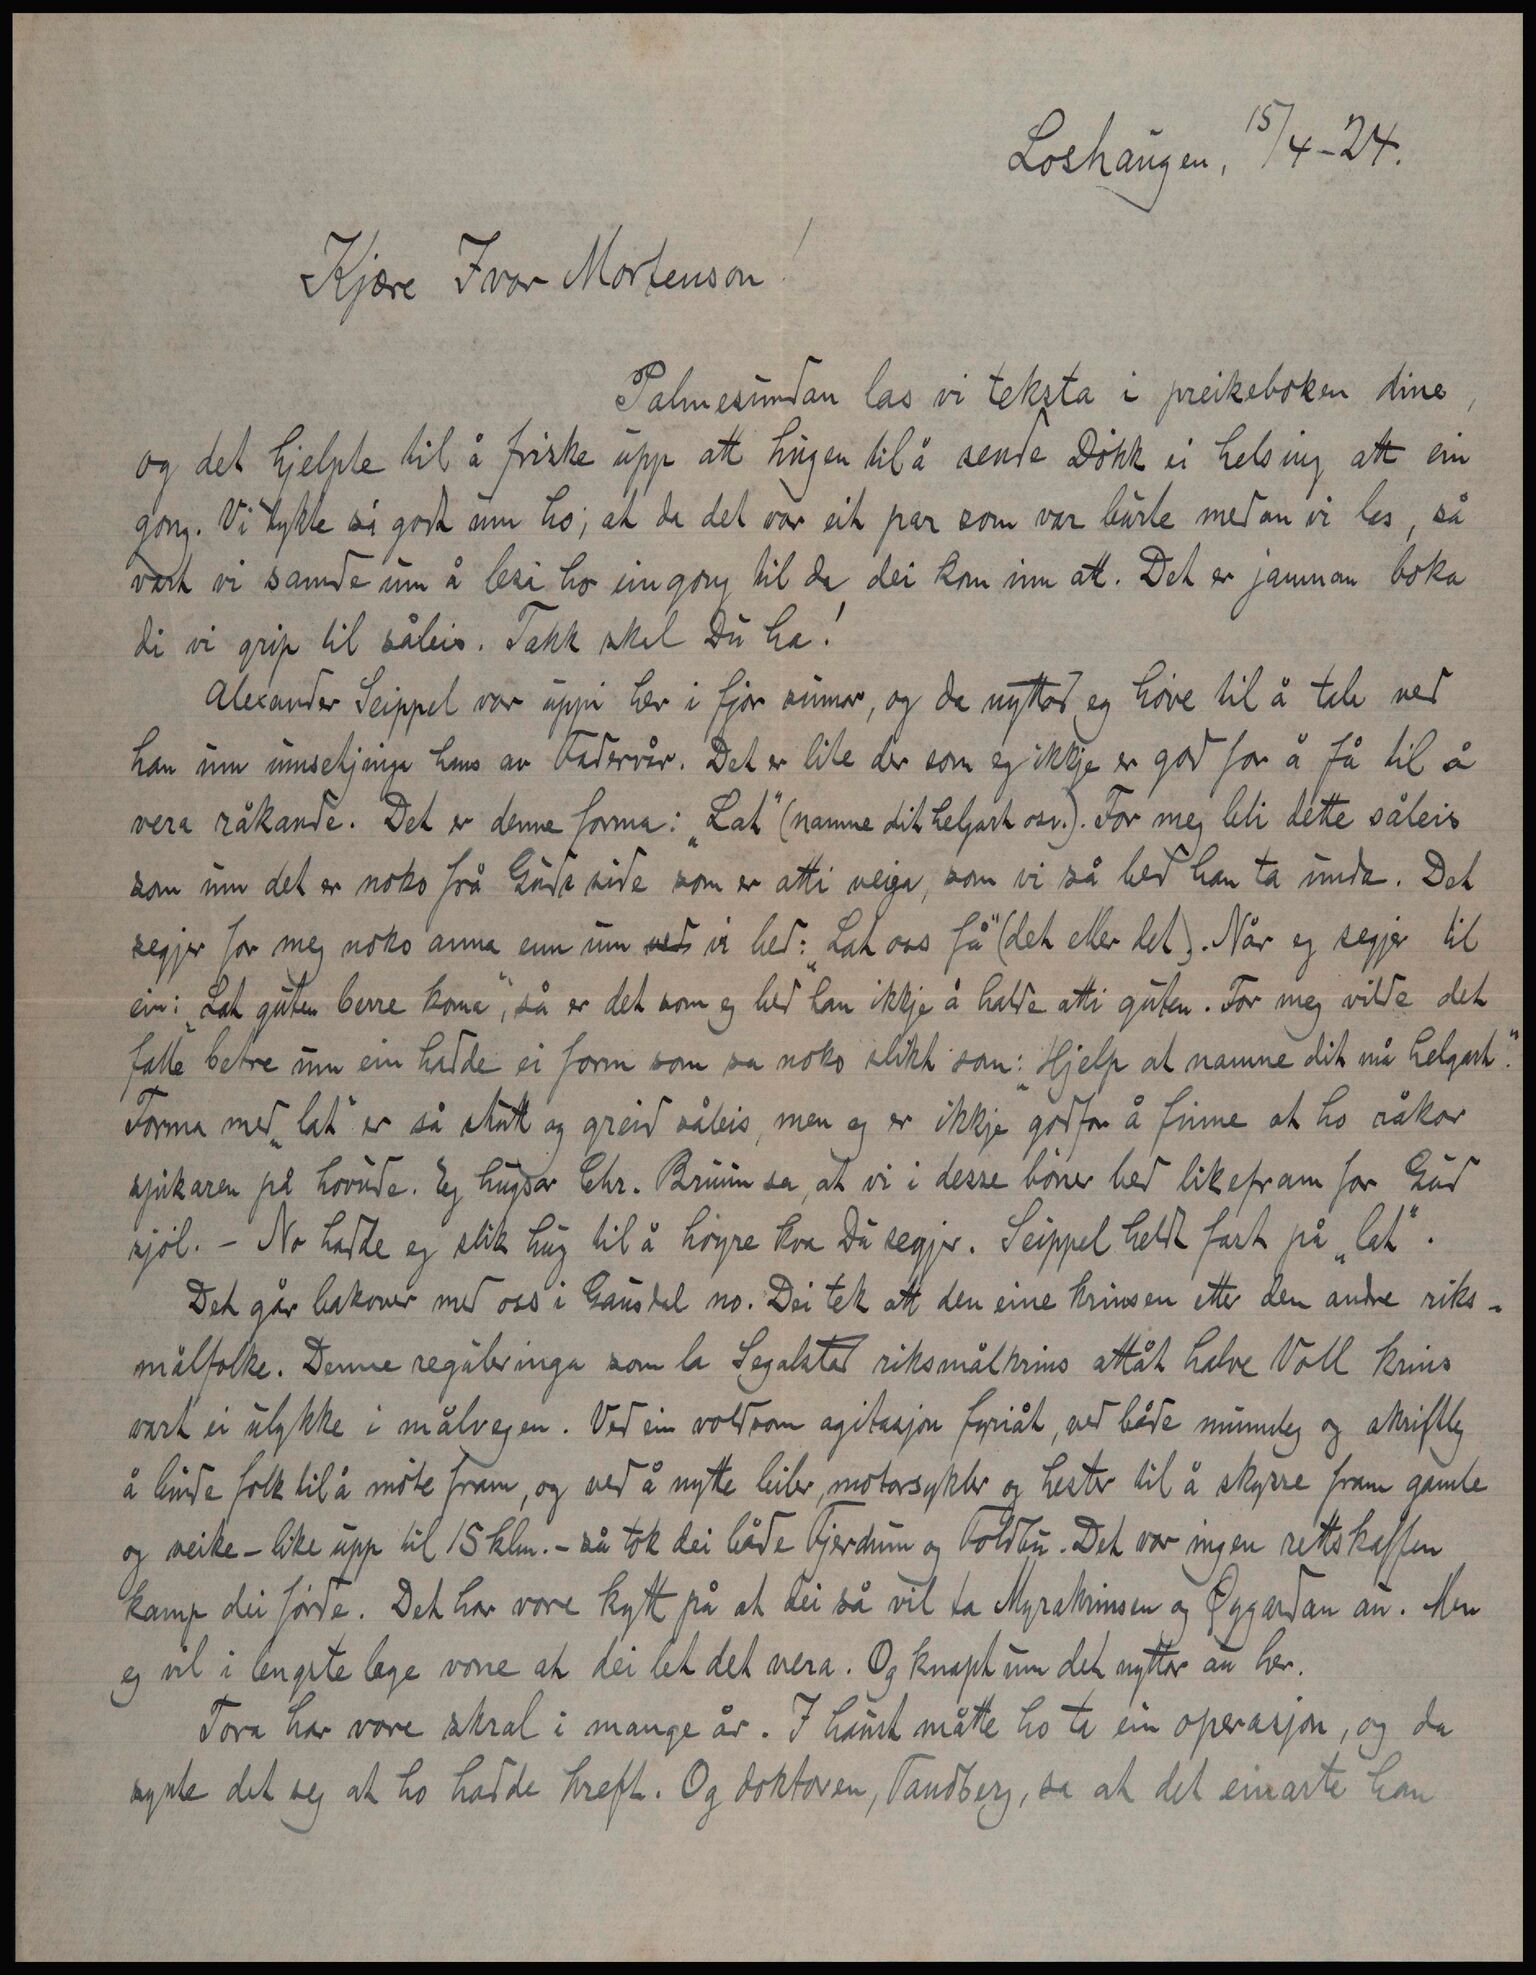 Loshaugen, 15/4–24.
Kjære Ivar Mortenson!
Palmesundan las vi teksta i preikeboken dine,
og det hjelpte til å friske upp att hugen til å sende Dökk ei helsing att ein
gong. Vi tykte så godt um ho; at da det var eit par som var burte medan vi las, så
vart vi samde um å lesa ho ein gong til da dei kom inn att. Det er jamnan boka
di vi grip til såleis. Takk skal Du ha!
Alexander Seippel var uppi her i fjor sumar, og da nyttad eg höve til å tala ved
han um umsetjinga hans av Fadervår. Det er lite der som eg ikkje er god for å få til å
vera råkande. Det er denne forma: „Lat" (namne dit helgast osv.). For meg bli dette såleis
som um det er noko frå Guds side som er atti veiga, som vi så bed han ta unda. Det
segjer for meg noko anna enn um vi bed: „Lat oss få" (det eller det). Når eg segjer til
ein: „Lat guten berre koma", så er det som eg bed han ikkje å halde atti guten. For meg vilde det
falle betre um ein hadde ei form som sa noko slikt som: „Hjelp at namne dit må helgast".
Forma med „lat" er så stutt og greid såleis, men eg er ikkje god for å finne at ho råkar
spikaren på hovude. Eg hugsar Chr. Bruun sa, at vi i desse böner bed likefram for Gud
sjöl. – No hadde eg slik hug til å höyre kva Du segjer. Seippel heldt fast på „lat".
Det går bakover med oss i Gausdal no. Dei tek att den eine krinsen etter den andre riks-
målfolke. Denne reguleringa som la Segalstad riksmålkrins attåt halve Voll krins
vart ei ulykke i målvegen. Ved ein voldsom agitasjon fyriåt, ved både munnleg og skriftleg
å binde folk til å möte fram, og ved å nytte biler, motorsykler og hester til å skysse fram gamle
og veike – like upp til 15 klm. – så tok dei både Fjerdum og Foldbu. Det var ingen rettskaffen
kamp dei förde. Det har vore kytt på at dei så vil ta Myrakrinsen og Öygardan au. Men
eg vil i lengste lage vone at dei let det vera. Og knapt um det nyttar au her.
Tora har vore skral i mange år. I haust måtte ho ta ein operasjon, og da
synte det seg at ho hadde kreft. Og doktoren, Tandberg, sa at det einaste han